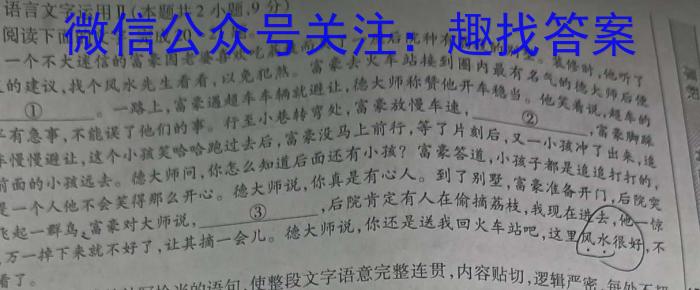 语言文字运用Ⅱ(本题共2小题,9分)
微信公众号关注：趣找答案
阅读下面
一个不大迷信的富商因老婆喜欢吃荔
后院种有
装修时,他听了
的建议,找个风水先生看看,以免犯煞。富豪去火车站接到圈内最有名气的德大师后便
①。一路上,富豪遇超车车辆就避让,德大师称赞他开车稳当。他笑着说,超车的
有急事,不能误了他们的事。行至小巷转弯处,富豪放慢车速,②,富豪脚踩
慢慢避让,这个小孩笑哈哈跑过去后,富豪没马上前行,等了片刻后,又一小孩冲了出来,追
前面的小孩远去。德大师问,你怎么知道后面还有小孩?富豪答道,小孩子都是追追打打的,
是一个人他不会笑得那么开心。德大师说,你真是有心人。到了别墅,富豪准备开门,后院突
飞起一群鸟,富豪对大师说,③,后院肯定有人在偷摘荔枝,我现在进去,他一惊
,万一掉下来就不好了,让其摘一会儿。德大师说,你还是送我回火车站吧,这里风水很好,不
看了。
写恰当的语句,使整段文字语意完整连贯,内容贴切,逻辑严密,每处不